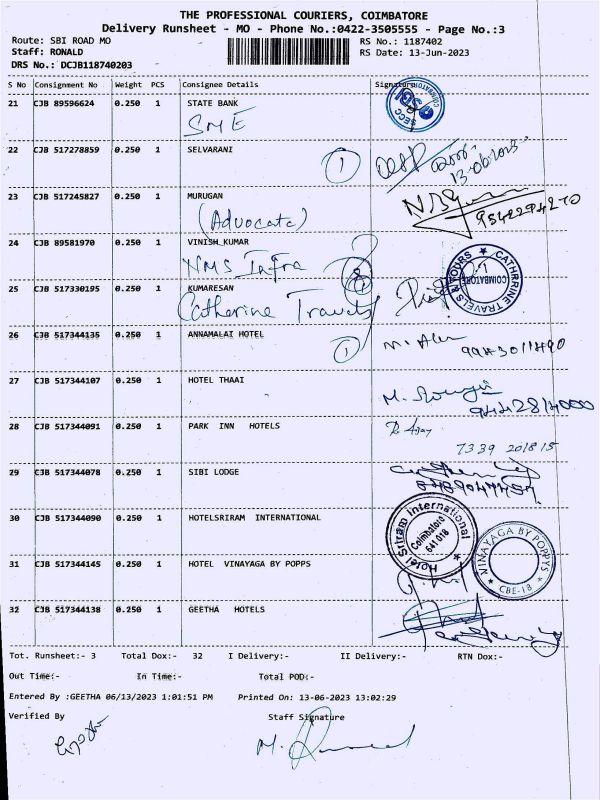 THE PROFESSIONAL COURIERS, COIMBATORE
Delivery Runsheet - MO - Phone No.:0422-3505555 - Page No.:3
Route: SBI ROAD MO RS No.: 1187402
Staff: RONALD RS Date: 13-Jun-2023
DRS No.: DCJB118740203
S No Consignment No Weight PCS Consignee Details Signature
21 CJB 89596624 0.250 1 STATE BANK
SME
22 CJB 517278859 0.250 1 SELVARANI
1
23 CJB 517245827 0.250 1 MURUGAN
(Advocate)
24 CJB 89581970 0.250 1 VINISH KUMAR
NMS Infra
25 CJB 517330195 0.250 1 KUMARESAN
Catherine Travels
CATHRINE TRAVELS & TOURS
COIMBATORE
26 CJB 517344135 0.250 1 ANNAMALAI HOTEL
1
27 CJB 517344107 0.250 1 HOTEL THAAI
28 CJB 517344091 0.250 1 PARK INN HOTELS
7339 201815
29 CJB 517344078 0.250 1 SIBI LODGE
30 CJB 517344090 0.250 1 HOTELSRIRAM INTERNATIONAL
Hotel Sriram International
Coimbatore
641 018
31 CJB 517344145 0.250 1 HOTEL VINAYAGA BY POPPS
VINAYAGA BY POPPYS
CBE-18
32 CJB 517344138 0.250 1 GEETHA HOTELS
Tot. Runsheet:- 3 Total Dox:- 32 I Delivery:- II Delivery:- RTN Dox:-
Out Time:- In Time:- Total POD:-
Entered By :GEETHA 06/13/2023 1:01:51 PM Printed On: 13-06-2023 13:02:29
Verified By Staff Signature